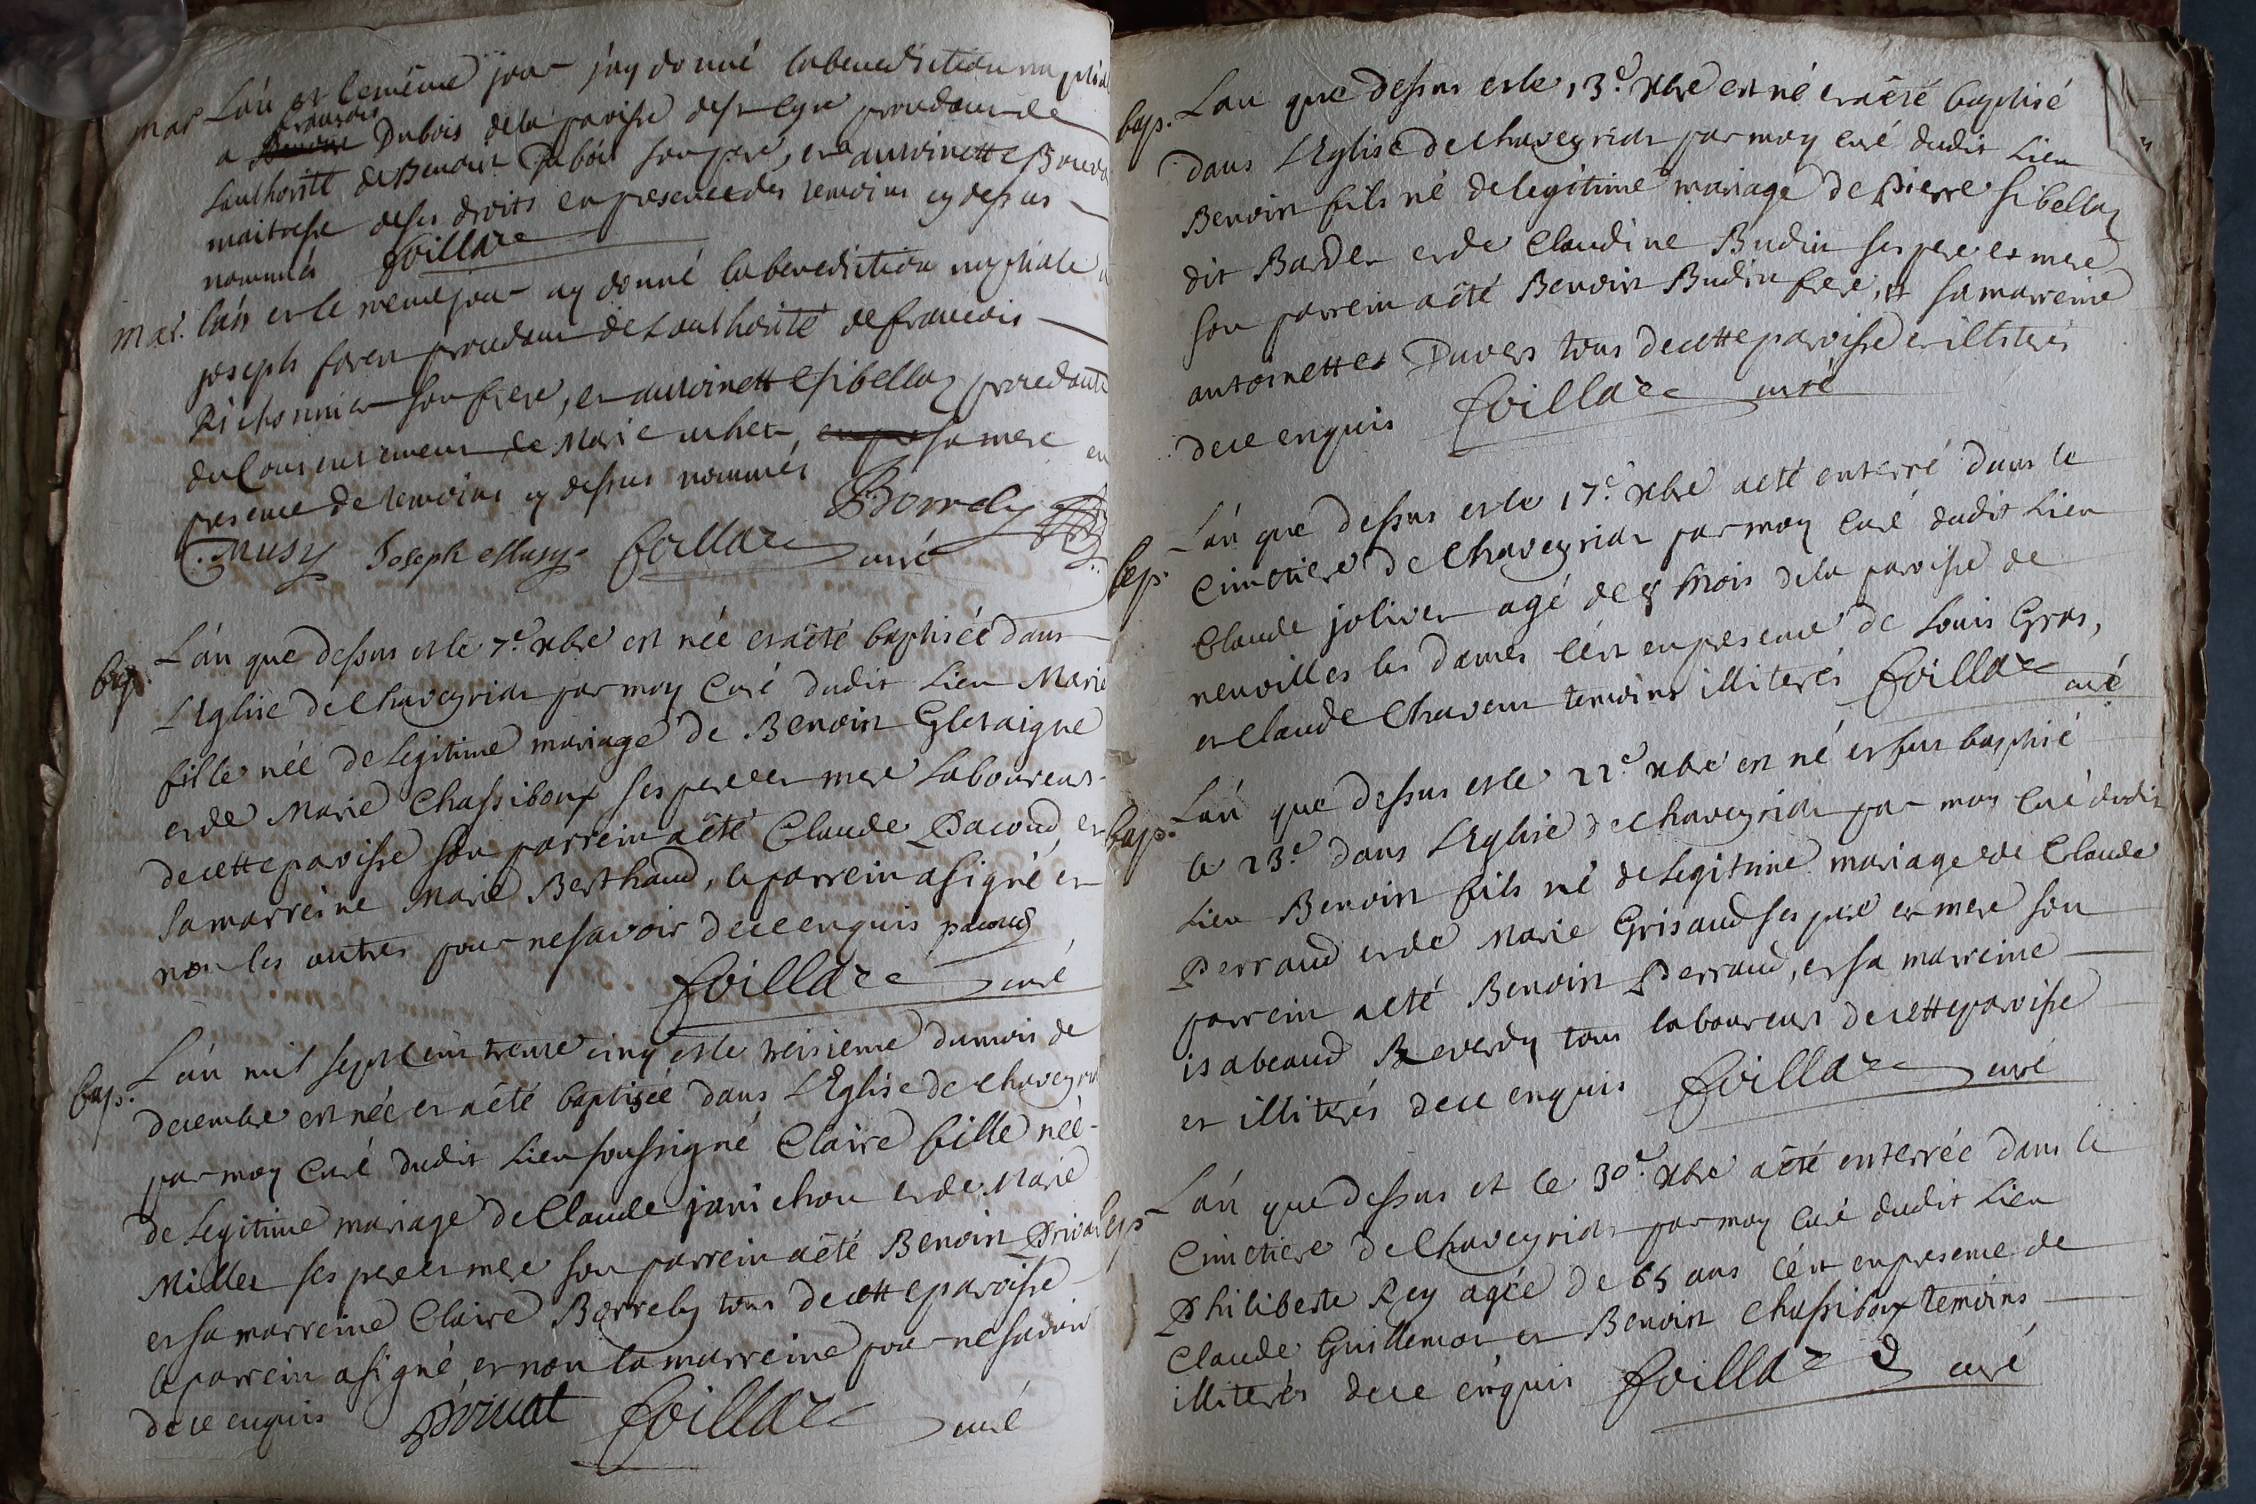 mar L'án et lemême jour j'ay donné labenediction nuptiale
françois
a Benoit Dubois dela paroisse de st Cyr procedant de
L'authorité de Benoit Dubois son pere, et a antoinette
maitresse deses droits en presence des temoins cy dessus
nommés foillare
mar. l'án et le meme jour ay donné labenediction nuptiale a
joseph procedant de Lauthorité defrancois
Richonnier son frere, et antoinette Sibellas procedante
du Consentement de Marie sa mere en
presence de temoins cy dessus nommés
Borrely
C. Musy Joseph Musy foillare curé
bap. L'án que dessus et le 7.e xbre est née et a êté baptisée dans
L'Eglise de Chaveyriat par moy Curé dudit Lieu Marie
fille née de Legitime mariage de Benoist Gletaigne
et de Marie Chassiboux ses pere et mere Laboureurs
decette paroisse son parrein a êté Claude Pacoud, et
sa marreine Marie Berthaud, le parrein a signé et
non les autres pour ne savoir de ce enquis pacoud
foillare curé
bap. L'án mil sept cent trente cinq et le treisieme dumois de
decembre est née et a êté baptisée dans L'Eglise de Chaveyriat
par moy Curé dudit Lieu soussigné Claire fille née
de Legitime mariage de Claude janichon et de Marie
Millet ses pere et mere son parrein a êté Benoist Privat
et sa marreine Claire Borrely tous de cette paroisse
le parrein a signé, et non la marreine pour ne savoir
de ce enquis Privat foillare curé
bap. L'an que dessus et le 13.e xbre est né et a êté baptisé
dans L'Eglise de Chaveyriat par moy curé dudit Lieu
Benoist fils né de legitime mariage de Pierre Sibellas
dit Bardet et de Claudine Budin ses pere et mere
son parrein a êté Benoist Budin frere, et sa marreine
antoinette Duvers tous de cette paroisse et illiterés
de ce enquis foillare curé
Sep. L'án que dessus et le 17.e xbre a eté enterré dans le
Cimetiere de Chaveyriat par moy Curé dudit Lieu
Claude jolivet agé de 8 mois de la paroisse de
neuvilles les Dames c'est en presence de Louis Gras,
et Claude Chavent temoins illiterés foillare curé
bap. L'án que dessus et le 22.e xbre est né et fut baptisé
le 23.e dans L'Eglise de Chaveyriat par moy Curé dudit
Lieu Benoist fils né de Legitime mariage de Claude
Perraud et de Marie Grisaud ses pere et mere son
parrein a eté Benoist Perraud, et sa marreine
isabeaud Reverdy tous laboureurs de cette paroisse
et illiterés de ce enquis foillare curé
Sep. L'án que dessus et le 30.e xbre a êté enterrée dans le
Cimetiere de Chaveyriat par moy Curé dudit Lieu
Philiberte Rey agée de 65 ans c'est en presence de
Claude Guillemot et Benoist Chassiboux temoins
illiterés de ce enquis foillare curé